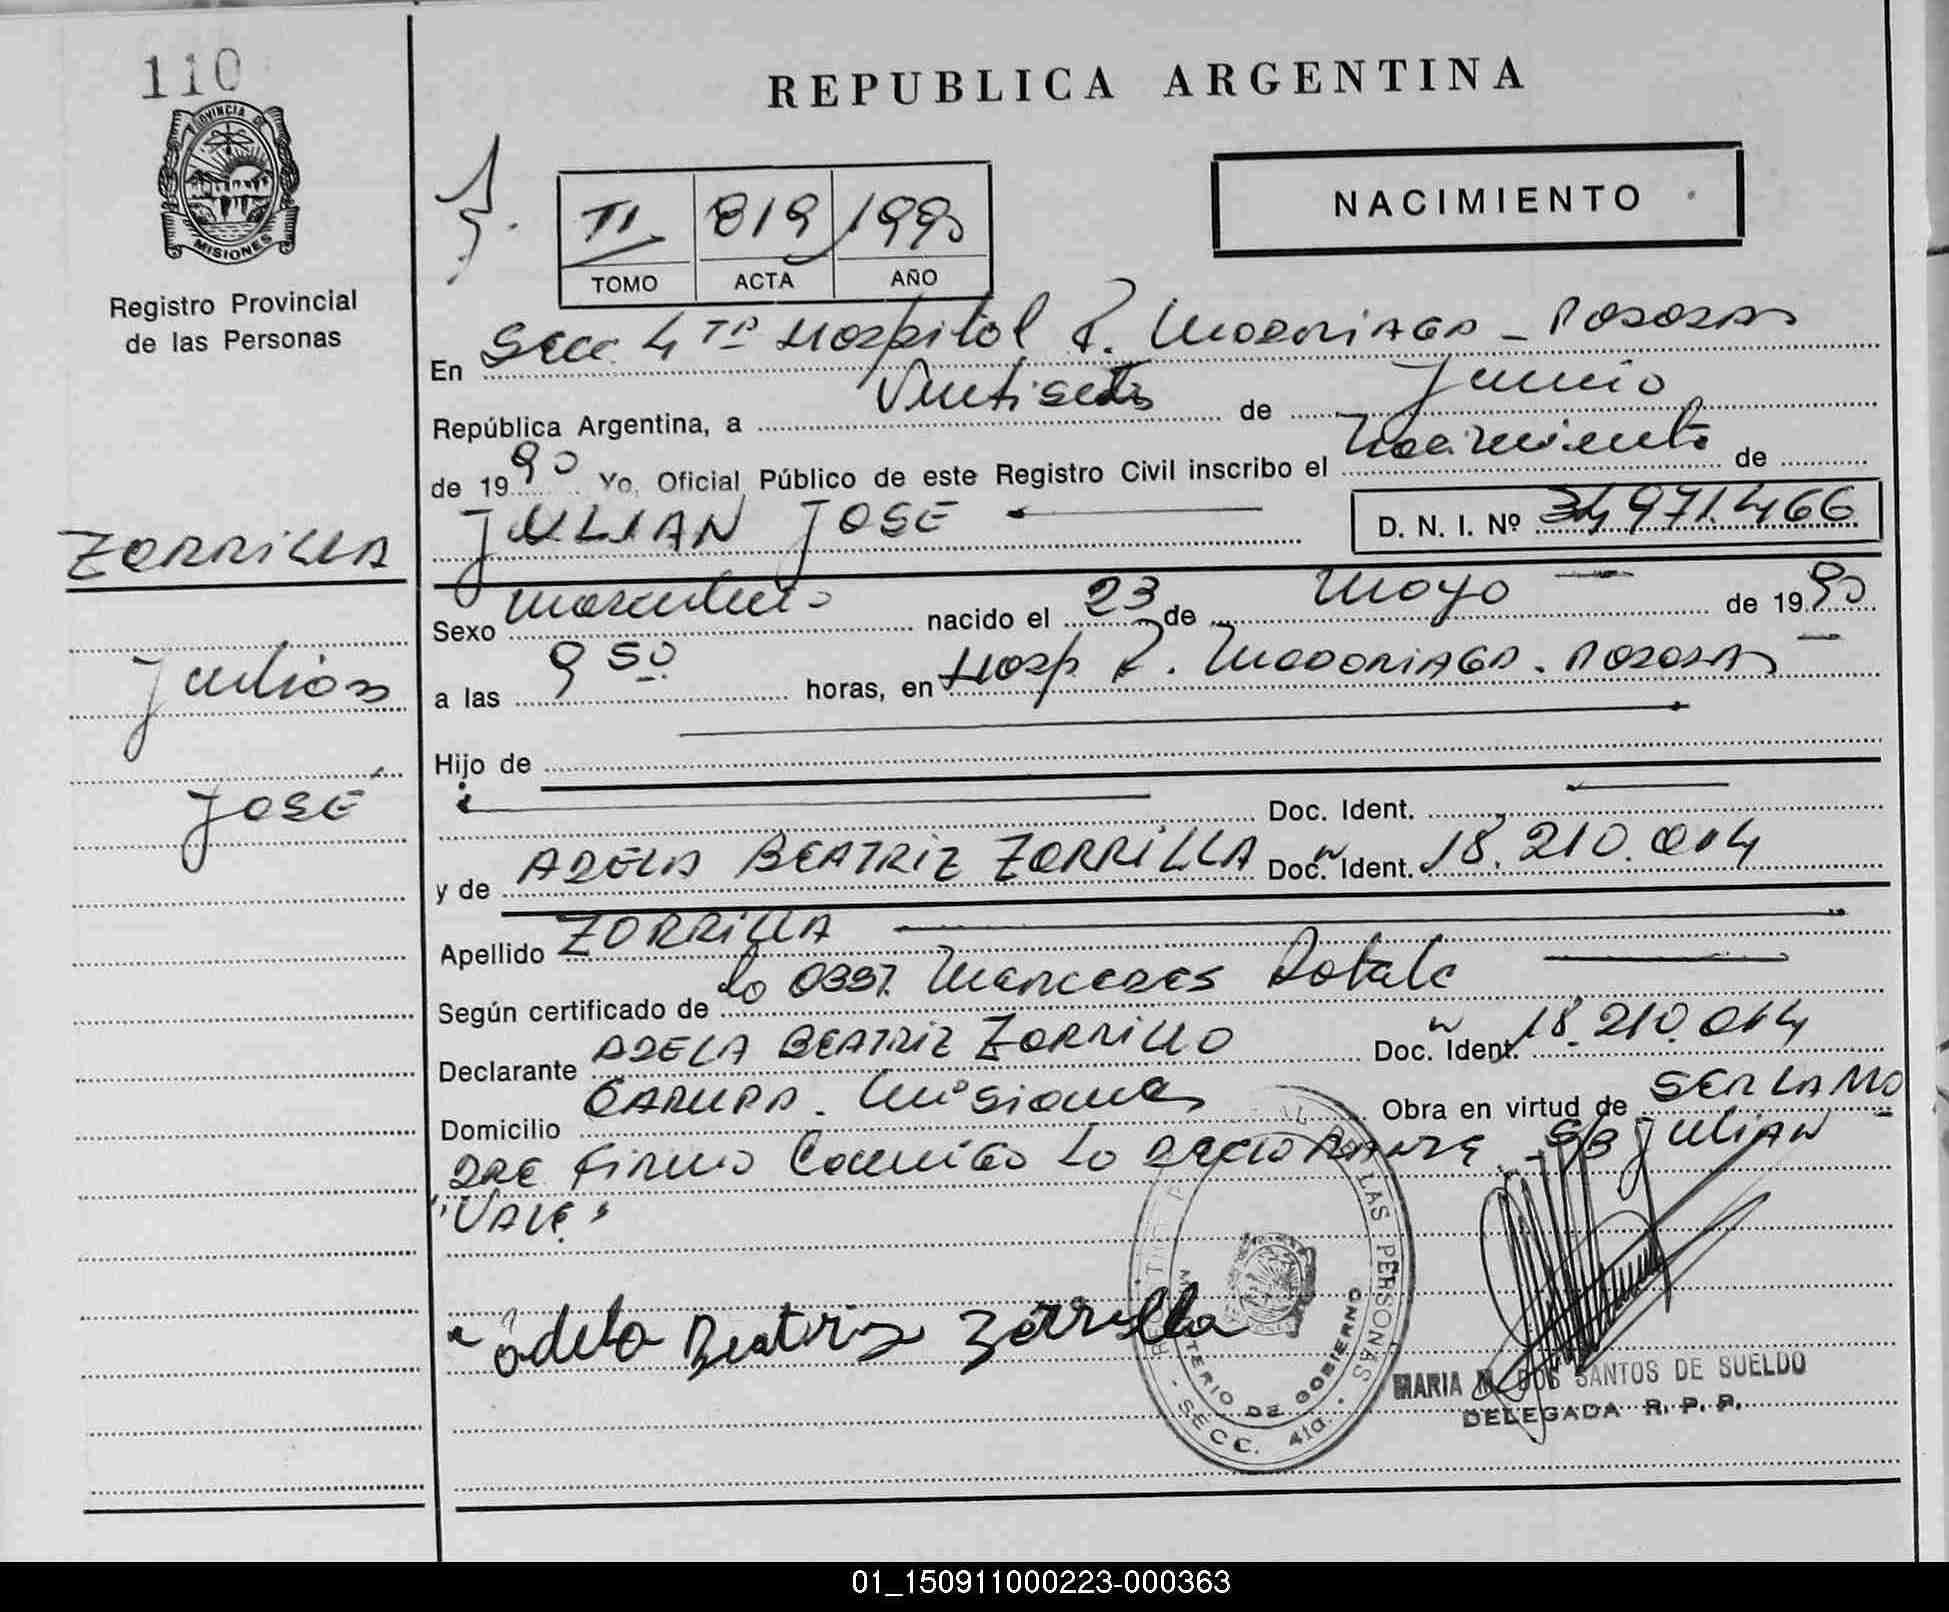 110
PROVINCIA DE
MISIONES
Registro Provincial
de las Personas
ZORRILLA
Julián
JOSÉ
REPUBLICA ARGENTINA
NACIMIENTO
II 819 1990
TOMO ACTA AÑO
En Secc. 4ta Hospital R. MADARIAGA - POSADAS
República Argentina, a Veintisiete de Junio
de 1990 Yo, Oficial Público de este Registro Civil inscribo el Nacimiento de
JULIAN JOSE D. N. I. Nº 34.971.466
Sexo masculino nacido el 23 de Mayo de 1990
a las 9 50 horas, en Hosp R. MADARIAGA. POSADAS
Hijo de
Doc. Ident.
y de ADELA BEATRIZ ZORRILLA Doc. Ident. 18.210.014
Apellido ZORRILLA
Según certificado de la
Declarante ADELA BEATRIZ ZORRILLA Doc. Ident. 18.210.014
Domicilio GARUPA. Misiones Obra en virtud de SER LA MA
DRE firma Conmigo La DECLARANTE - S/B JULIAN
"VALE"
Adela Beatriz Zorrilla
DE LAS PERSONAS
MINISTERIO DE GOBIERNO
SECC. 4ta.
MARIA M. DOS SANTOS DE SUELDO
DELEGADA R. P. P.
01_150911000223-000363